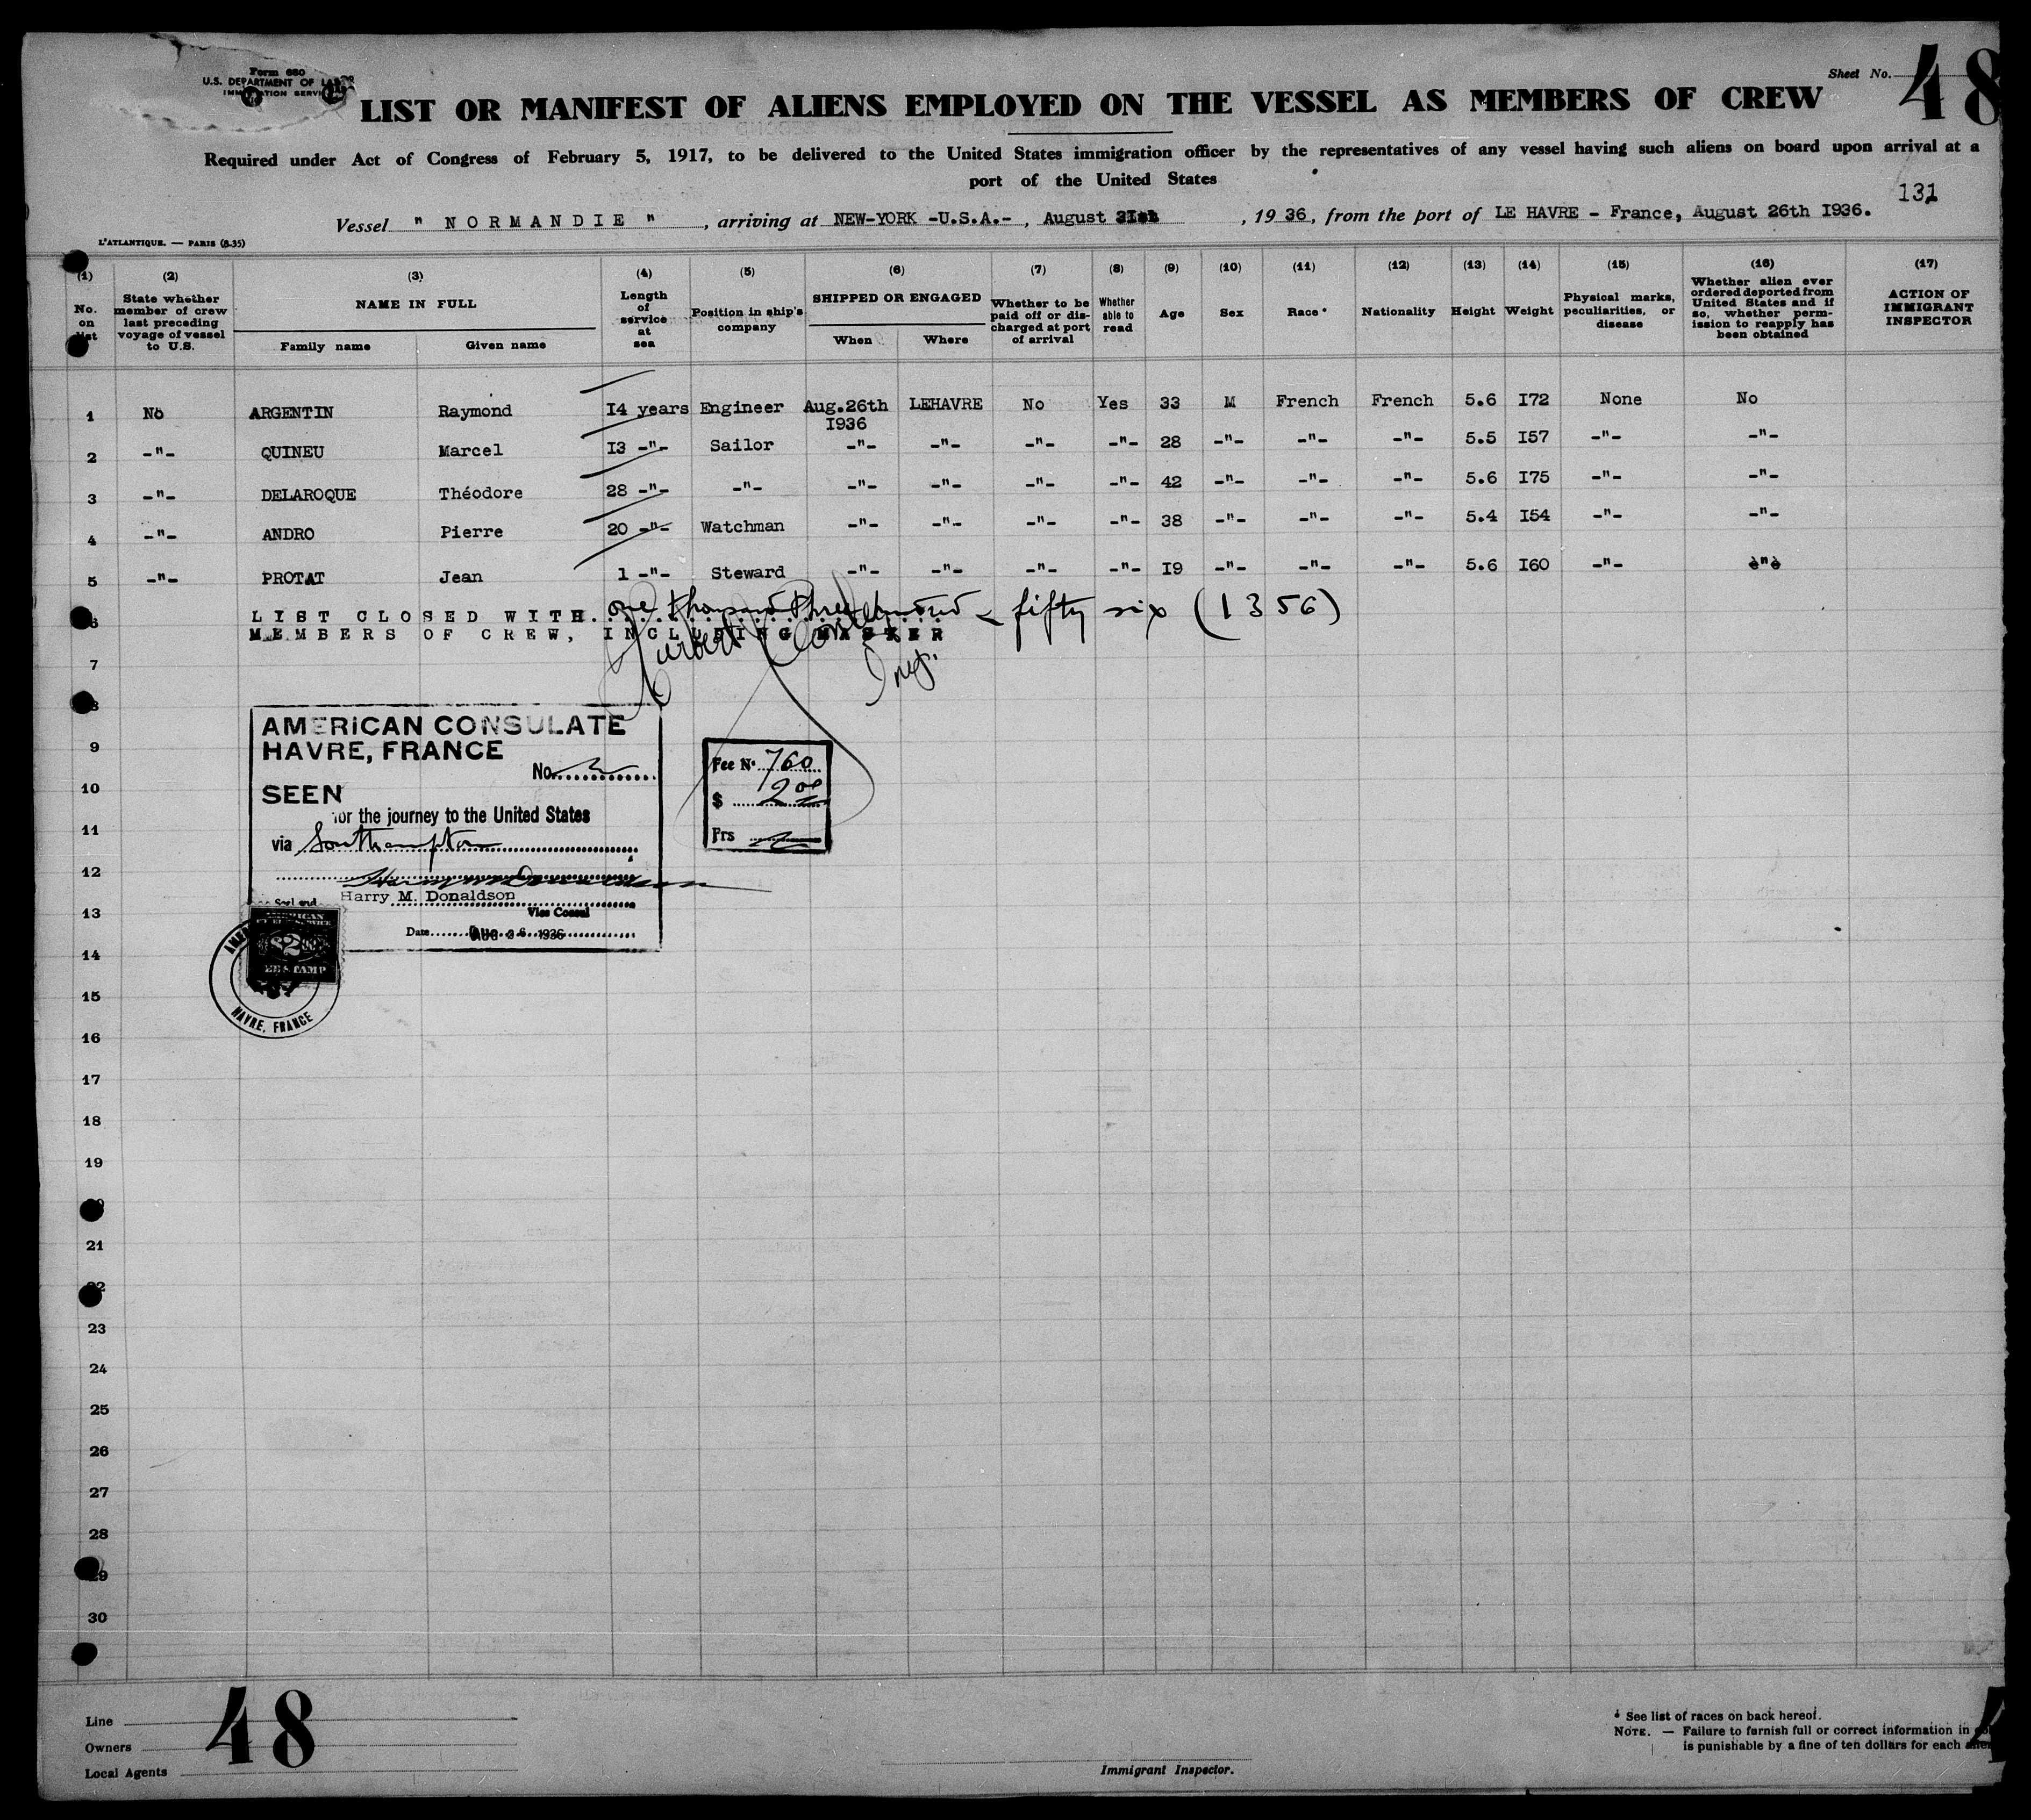 Form 680
U.S. DEPARTMENT OF LABOR
IMMIGRATION SERVICE
Sheet No. 48
LIST OR MANIFEST OF ALIENS EMPLOYED ON THE VESSEL AS MEMBERS OF CREW
Required under Act of Congress of February 5, 1917, to be delivered to the United States immigration officer by the representatives of any vessel having such aliens on board upon arrival at a
port of the United States
131
Vessel " NORMANDIE ", arriving at NEW-YORK -U.S.A.-, August 31st, 1936, from the port of LE HAVRE - France, August 26th I936.
L'ATLANTIQUE. — PARIS (8-35)
(1) (2) (3) (4) (5) (6) (7) (8) (9) (10) (11) (12) (13) (14) (15) (16) (17)
No. on list
State whether member of crew last preceding voyage of vessel to U.S.
NAME IN FULL
Family name
Given name
Length of service at sea
Position in ship's company
SHIPPED OR ENGAGED
When
Where
Whether to be paid off or discharged at port of arrival
Whether able to read
Age
Sex
Race *
Nationality
Height
Weight
Physical marks, peculiarities, or disease
Whether alien ever ordered deported from United States and if so, whether permission to reapply has been obtained
ACTION OF IMMIGRANT INSPECTOR
1 No ARGENTIN Raymond I4 years Engineer Aug.26th I936 LEHAVRE No Yes 33 M French French 5.6 I72 None No
2 -"- QUINEU Marcel I3 -"- Sailor -"- -"- -"- -"- 28 -"- -"- -"- 5.5 I57 -"- -"-
3 -"- DELAROQUE Théodore 28 -"- -"- -"- -"- -"- -"- 42 -"- -"- -"- 5.6 I75 -"- -"-
4 -"- ANDRO Pierre 20 -"- Watchman -"- -"- -"- -"- 38 -"- -"- -"- 5.4 I54 -"- -"-
5 -"- PROTAT Jean 1 -"- Steward -"- -"- -"- -"- I9 -"- -"- -"- 5.6 I60 -"- -"-
LIST CLOSED WITH one thousand three hundred fifty six (1356)
MEMBERS OF CREW, INCLUDING MASTER
7
8
AMERICAN CONSULATE
HAVRE, FRANCE
No.
SEEN
for the journey to the United States
via Southampton
Harry M. Donaldson
Vice Consul
Date AUG 26 1936
Fee No. 760
$ 2.00
Frs
AMERICAN
$2
FEE STAMP
HAVRE, FRANCE
9
10
11
12
13
14
15
16
17
18
19
20
21
22
23
24
25
26
27
28
29
30
Line
Owners
Local Agents
48
Immigrant Inspector.
* See list of races on back hereof.
NOTE. — Failure to furnish full or correct information in
is punishable by a fine of ten dollars for each alien